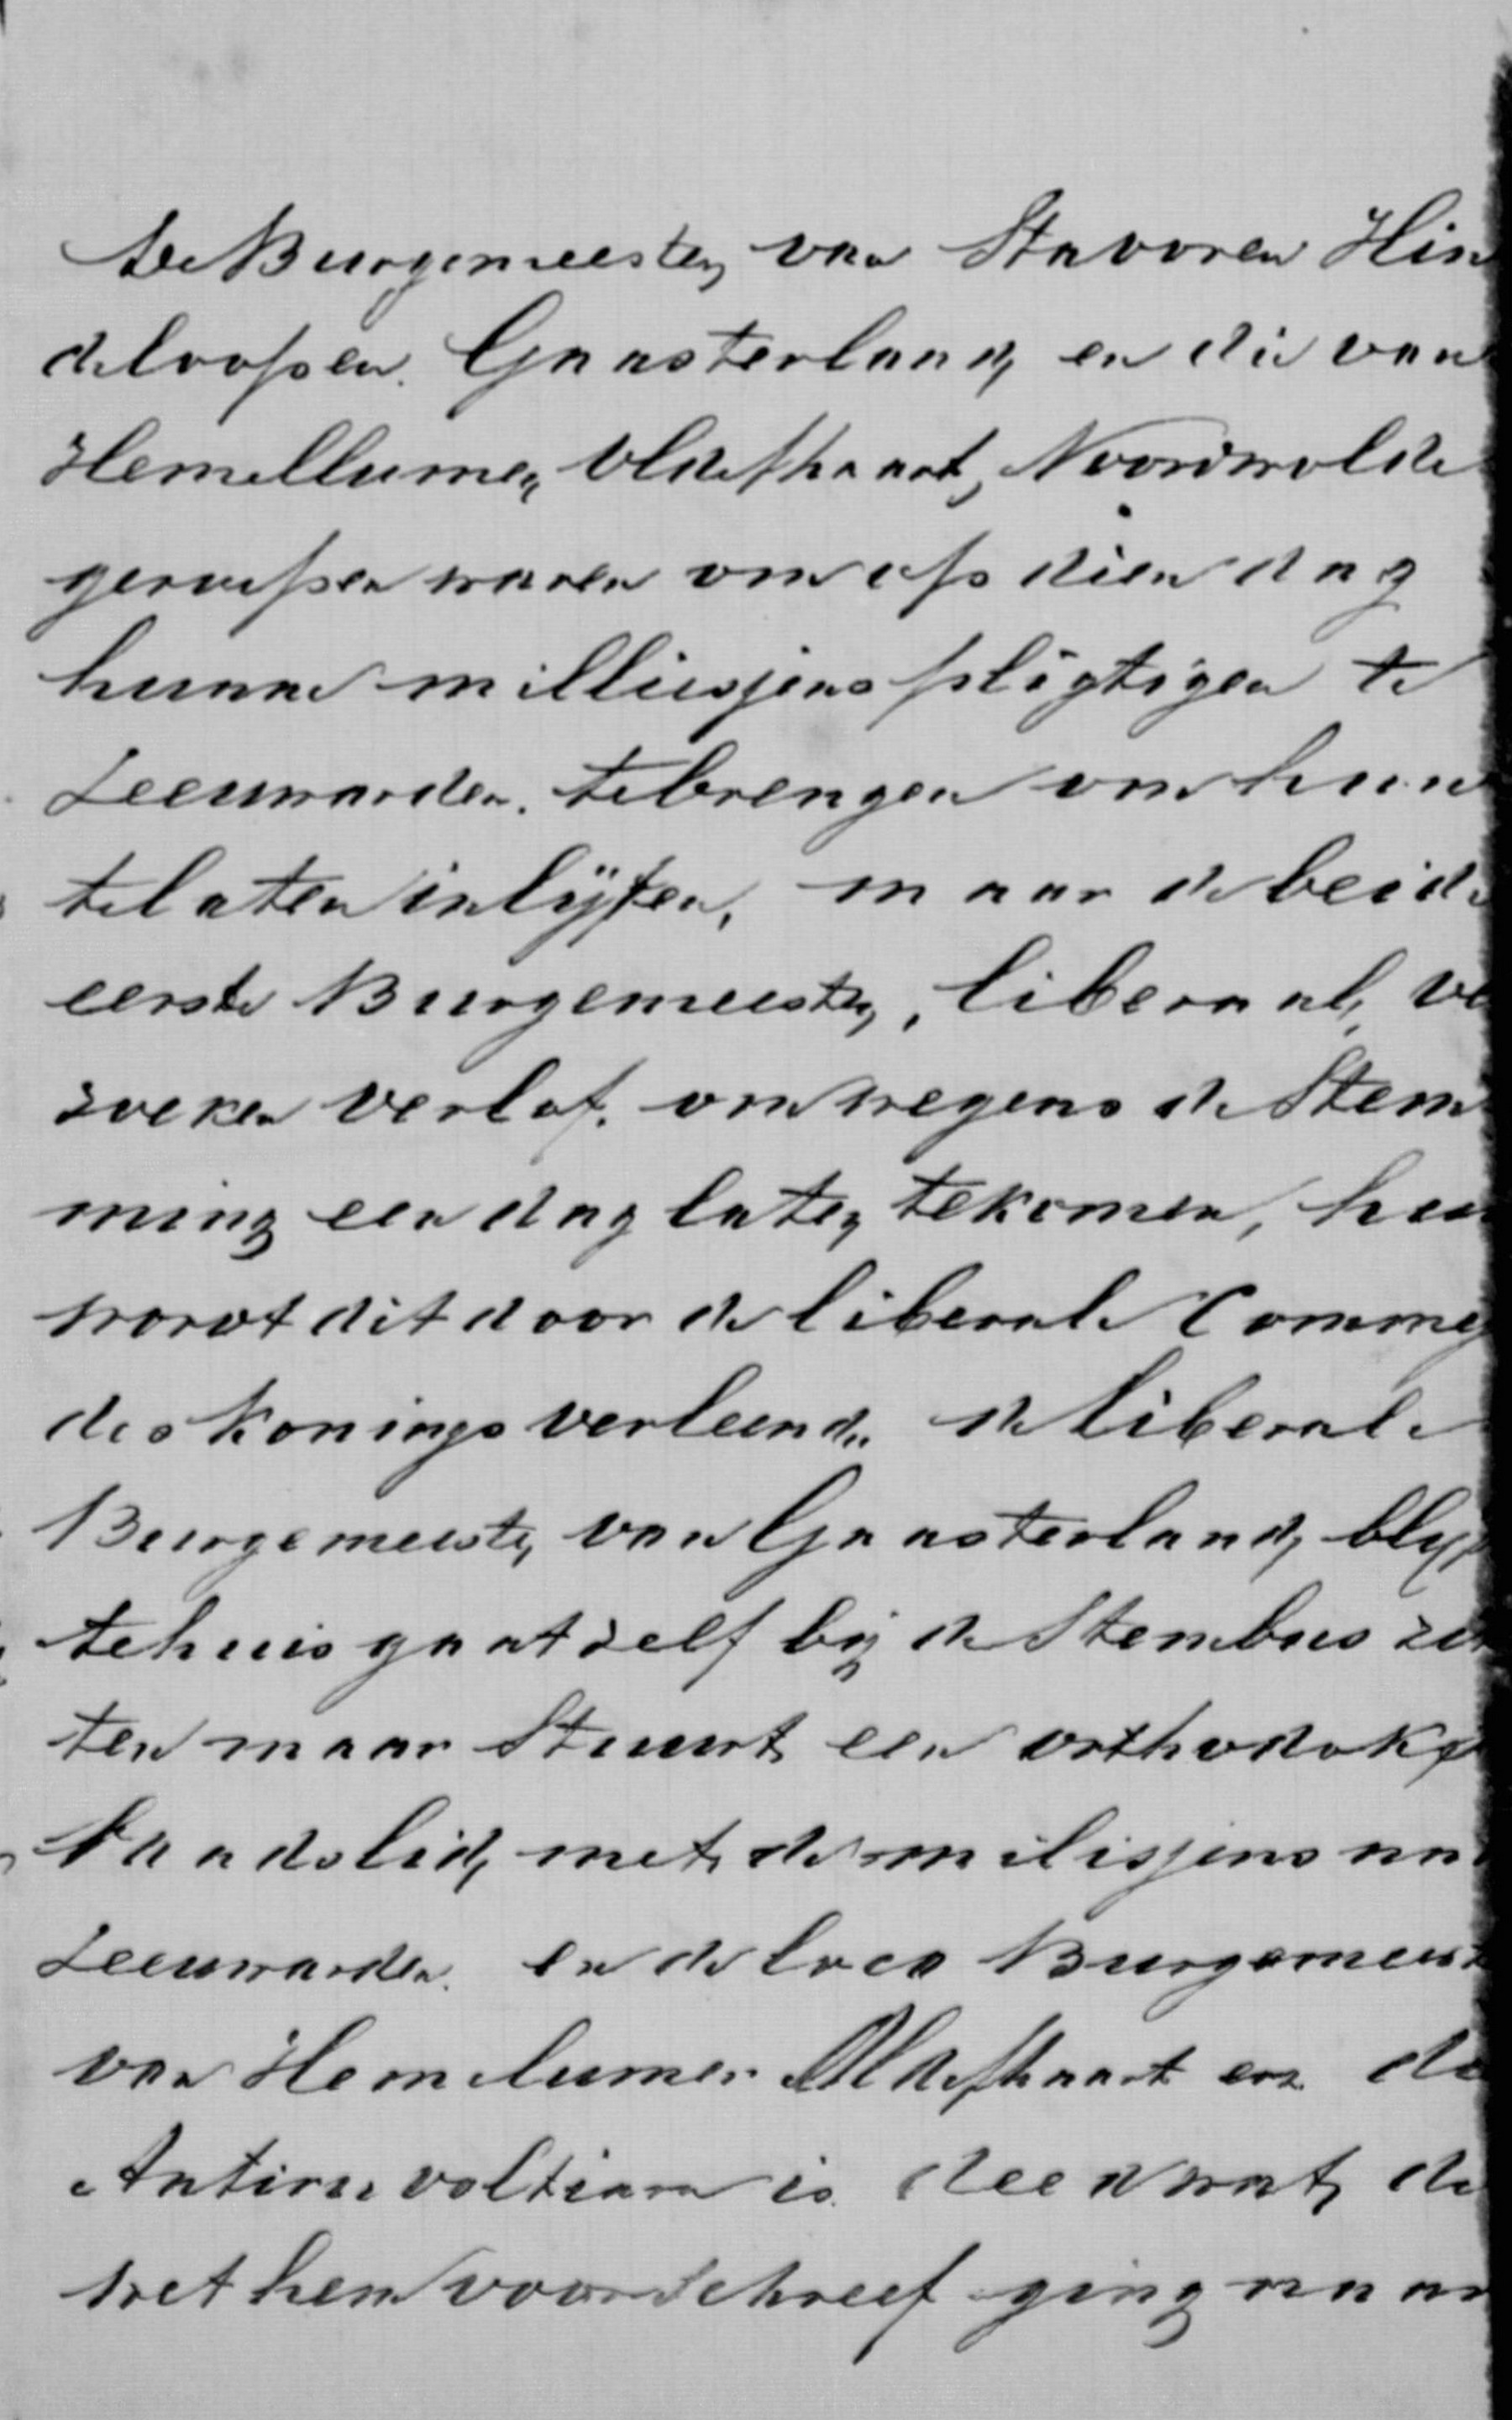 De Burgemeester van Stavoren Hin
deloopen. Gaasterland en die van
Hemellumer, Oldefhaart, Noordwolde
geroepen waren om op dien dag
hunne milliesjens pligtigen te
Leeuwarden. tebrengen om hun
telaten inlijfen, maar de beide
eerste Burgemeester, liberaal, ve
zoeken verlof. om wegens de Stem
ming een dag later tekomen, hun
wordt dit door de liberale Comme
des Konings verleend. de liberale
Burgemeester van Gaasterland blyf
tehuis gaat zelf bij de Stembus zit
ten maar Stuurt een orthodoks
Raadslid, met de milisjens na
Leeuwarden. en de loco Burgemeest
van Hemelumer Oldefhaart en die
Antirevoltiaan is deed wat de
wet hem voorschreef ging naar